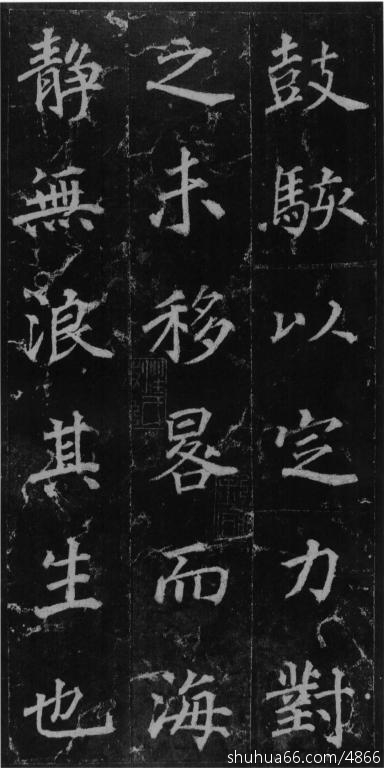 鼓駭以定力對
之未移晷而海
静無浪其生也
shuhua66.com/4866